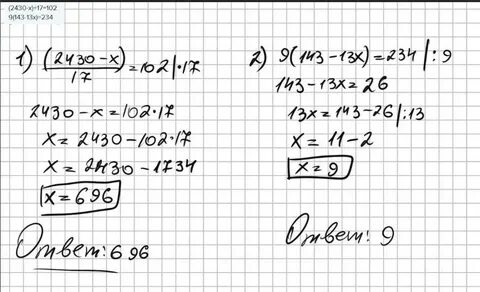 (2430-x)÷17=102
9(143-13x)=234
1) (2430-x)/17 = 102 |·17
2430-x=102·17
x = 2430-102·17
x = 2430-1734
x = 696
Ответ: 696
2) 9(143-13x)=234 |:9
143-13x=26
13x=143-26 |:13
x = 11-2
x = 9
Ответ: 9